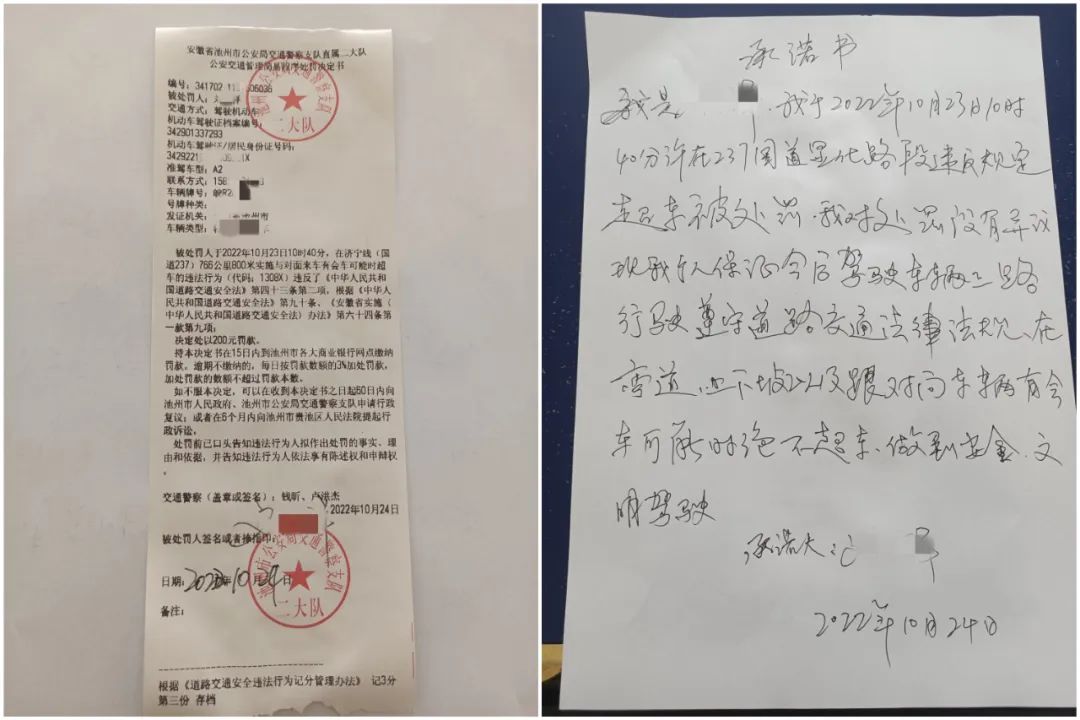 安徽省池州市公安局交通警察支队直属二大队
公安交通管理简易程序处罚决定书
编号：341702
被处罚人：
交通方式：驾驶机动车
机动车驾驶证档案编号：
342901337293
机动车驾驶证/居民身份证号码：
34292219 1X
准驾车型：A2
联系方式：156
车辆牌号：皖R2
号牌种类：
发证机关： 池州市
车辆类型：
被处罚人于2022年10月23日10时40分，在济宁线（国
道237）766公里800米实施与对面来车有会车可能时超
车的违法行为（代码：1308X）违反了《中华人民共
和国道路交通安全法》第四十三条第二项，根据《中华人
民共和国道路交通安全法》第九十条、《安徽省实施〈
中华人民共和国道路交通安全法〉办法》第六十四条第
一款第九项；
决定处以200元罚款。
持本决定书在15日内到池州市各大商业银行网点缴纳
罚款。逾期不缴纳的，每日按罚款数额的3%加处罚款，
加处罚款的数额不超过罚款本数。
如不服本决定，可以在收到本决定书之日起60日内向
池州市人民政府、池州市公安局交通警察支队申请行政
复议；或者在6个月内向池州市贵池区人民法院提起行
政诉讼。
处罚前已口头告知违法行为人拟作出处罚的事实、理
由和依据，并告知违法行为人依法享有陈述权和申辩权。
交通警察（盖章或签名）：钱昕、卢洪杰
2022年10月24日
被处罚人签名或者捺指印：
日期：2022年10月24日
备注：
根据《道路交通安全违法行为记分管理办法》 记3分
第三份 存档
池州市公安局交通警察支队
二大队
池州市公安局交通警察支队
二大队
承诺书
我是 ，我于2022年10月23日10时
40分许在237国道 路段违反规定
超车被处罚，我对处罚没有异议
现我个人保证今后驾驶车辆上路
行驶遵守道路交通法律法规，在
弯道、上下坡以及跟对向车辆有会
车可能时绝不超车，做到安全、文
明驾驶
承诺人：
2022年10月24日